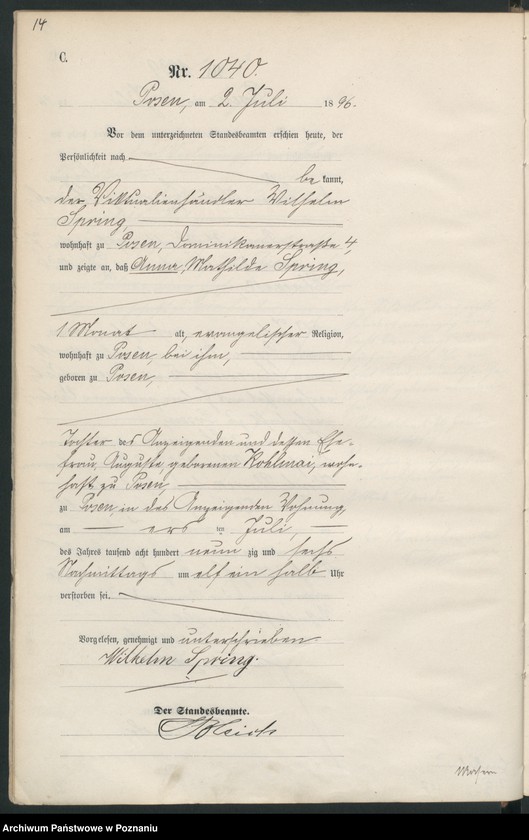 14
C.
Nr. 1040.
Posen, am 2. Juli 1896.
Vor dem unterzeichneten Standesbeamten erschien heute, der
Persönlichkeit nach
be kannt,
der Viktualienhändler Wilhelm
Spring
wohnhaft zu Posen, Dominikanerstraße 4,
und zeigte an, daß Anna Mathilde Spring,
1 Monat alt, evangelischer Religion,
wohnhaft zu Posen bei ihm,
geboren zu Posen,
Tochter des Anzeigenden und dessen Ehe-
frau Auguste, geborenen Kohlmai, wohn-
haft zu Posen,
zu Posen, in des Anzeigenden Wohnung,
am ers ten Juli,
des Jahres tausend acht hundert neun zig und sechs
Nachmittags um elf ein halb Uhr
verstorben sei.
Vorgelesen, genehmigt und unterschrieben
Wilhelm Spring.
Der Standesbeamte.
Archiwum Państwowe w Poznaniu